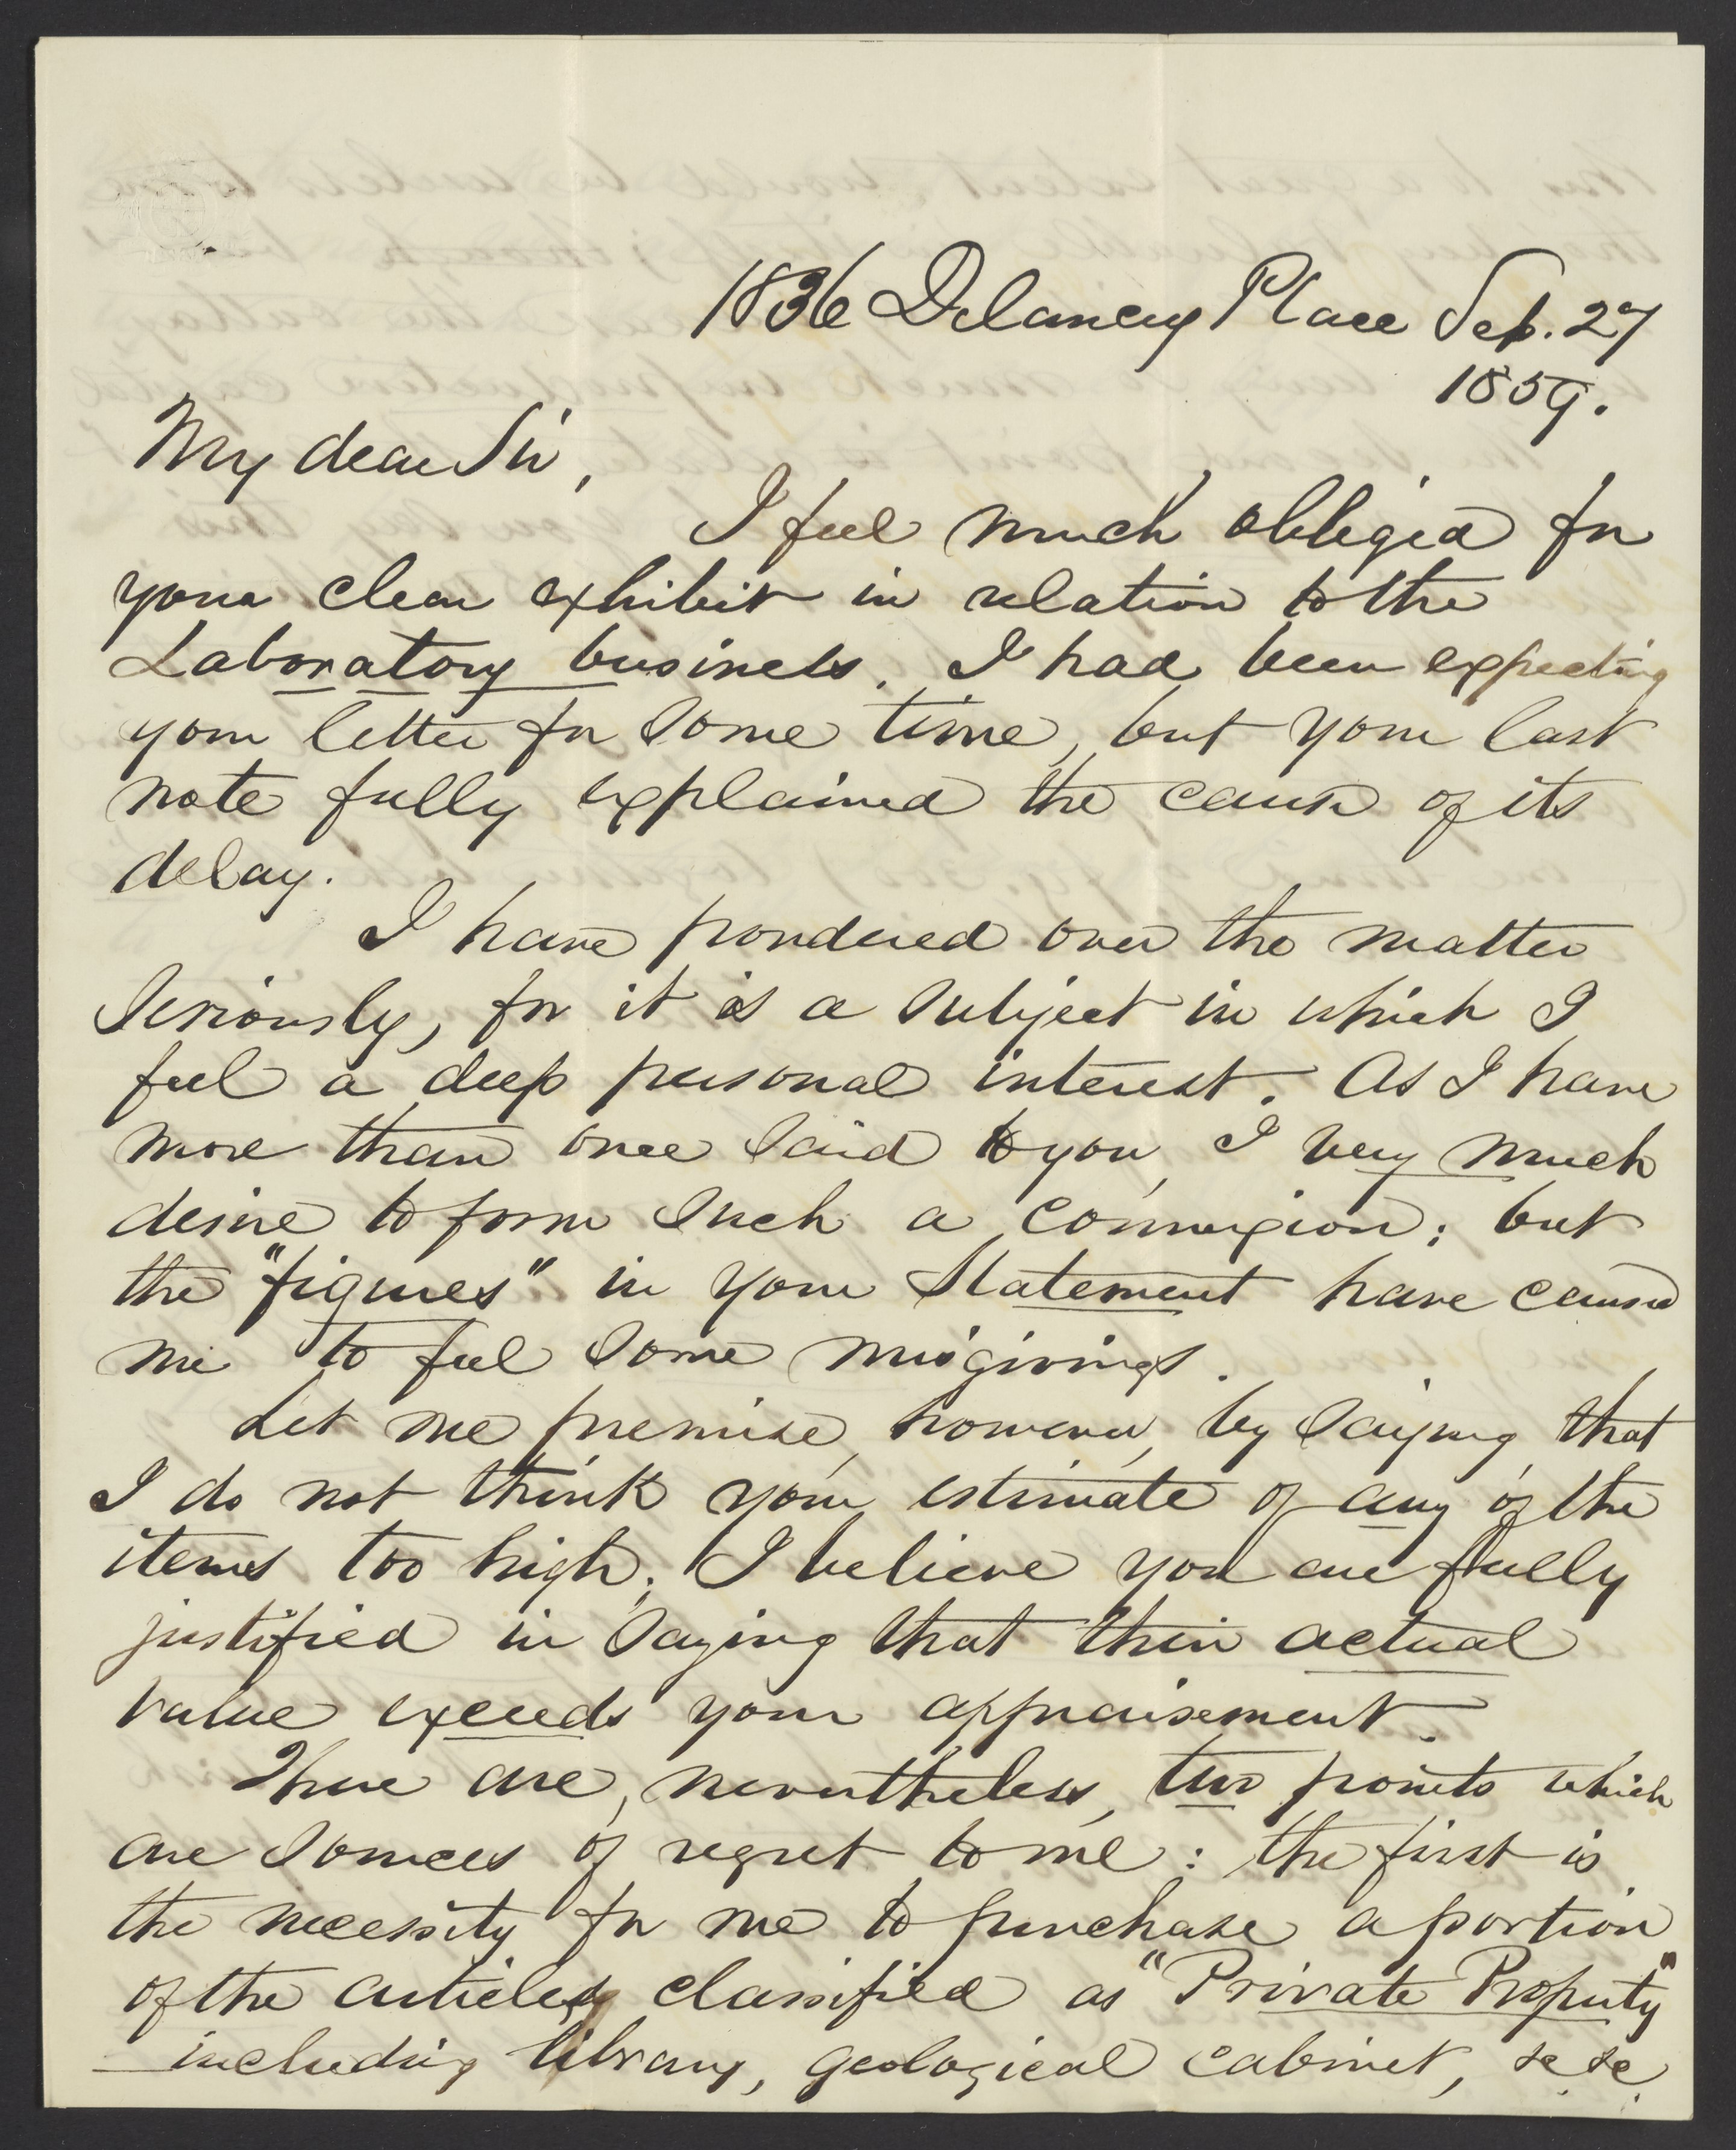 1836 Delancey Place Sep. 27
1859.
My dear Sir,
I feel much obliged for
your clear exhibit in relation to the
Laboratory business. I had been expecting
your letter for some time, but your last
note fully explained the cause of its
delay.
I have pondered over the matter
seriously, for it is a subject in which I
feel a deep personal interest. As I have
more than once said to you, I very much
desire to form such a connexion; but
the "figures" in your Statement have caused
me to feel some misgivings.
Let me premise, however, by saying that
I do not think your estimate of any of the
items too high; I believe you are fully
justified in saying that their actual
value exceeds your appraisement.
There are, nevertheless, two points which
are sources of regret to me: the first is
the necessity for me to purchase a portion
of the articles classified as "Private Property"
—including library, geological cabinet, &c &c.